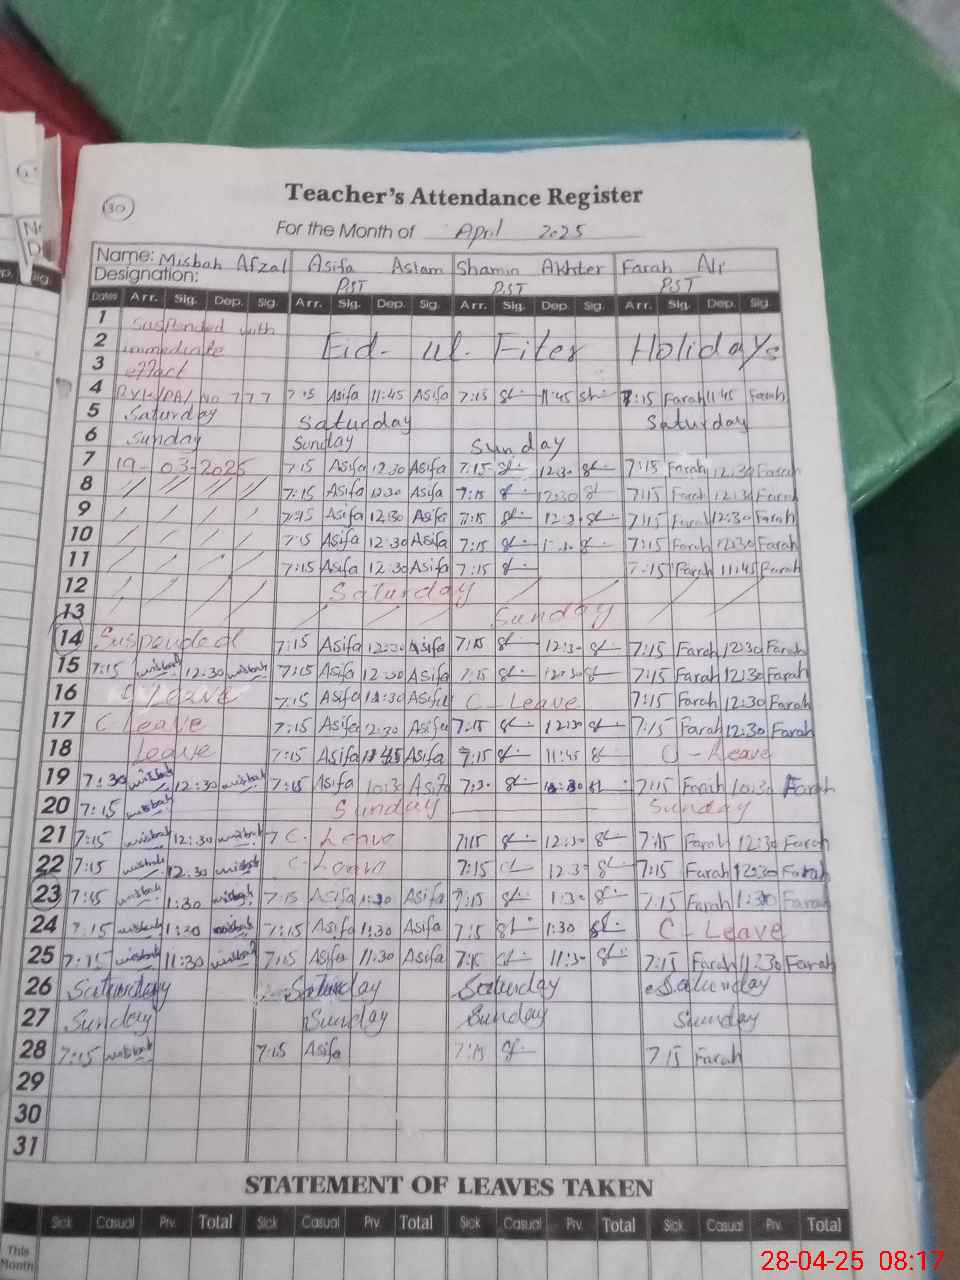 30
Teacher's Attendance Register
For the Month of April 2025
Name: Misbah Afzal Asifa Aslam Shamin Akhter Farah Alr
Designation: PST PST PST
Dates Arr. Sig. Dep. Sig. Arr. Sig. Dep. Sig. Arr. Sig. Dep. Sig. Arr. Sig. Dep. Sig.
1 Suspended with
2 immediate Eid- ul- Fiter Holidays
3 effact
4 777 7:15 Asifa 11:45 Asifa 7:15 11:45 7:15 Farah 11:45 Farah
5 Saturday Saturday Saturday
6 Sunday Sunday Sunday
7 19-03-2025 7:15 Asifa 12:30 Asifa 7:15 12:30 7:15 Farah 12:30 Farah
8 7:15 Asifa 12:30 Asifa 7:15 12:30 7:15 Farah 12:30 Farah
9 7:15 Asifa 12:30 Asifa 7:15 7:15 Farah 12:30 Farah
10 7:15 Asifa 12:30 Asifa 7:15 7:15 Farah 12:30 Farah
11 7:15 Asifa 12:30 Asifa 7:15 7:15 Farah 11:45 Farah
12 Saturday
13 Sunday
14 Suspended 7:15 Asifa 12:30 Asifa 7:15 12:30 7:15 Farah 12:30 Farah
15 7:15 misbah 12:30 misbah 7:15 Asifa 12:30 Asifa 7:15 12:30 7:15 Farah 12:30 Farah
16 Leave 7:15 Asifa 12:30 Asifa C-Leave 7:15 Farah 12:30 Farah
17 C-Leave 7:15 Asifa 12:30 Asifa 7:15 12:30 7:15 Farah 12:30 Farah
18 Leave 7:15 Asifa 11:45 Asifa 7:15 11:45 C-Leave
19 7:30 misbah 12:30 misbah 7:15 Asifa 10:30 Asifa 7:15 Farah 10:30 Farah
20 7:15 misbah Sunday Sunday
21 7:15 misbah 12:30 misbah 7 C-Leave 7:15 12:30 7:15 Farah 12:30 Farah
22 7:15 misbah 12:30 misbah C-Leave 7:15 12:30 7:15 Farah 12:30 Farah
23 7:45 misbah 1:30 misbah 7:15 Asifa 1:30 Asifa 7:15 1:30 7:15 Farah 1:30 Farah
24 7:15 misbah 1:30 misbah 7:15 Asifa 1:30 Asifa 7:15 1:30 C-Leave
25 7:15 misbah 11:30 misbah 7:15 Asifa 11:30 Asifa 7:15 11:30 7:15 Farah 11:30 Farah
26 Saturday Saturday Saturday Saturday
27 Sunday Sunday Sunday Sunday
28 7:15 misbah 7:15 Asifa 7:15 7:15 Farah
29
30
31
STATEMENT OF LEAVES TAKEN
Sick Casual Prv. Total Sick Casual Prv. Total Sick Casual Prv. Total Sick Casual Prv. Total
This
Month
28-04-25 08:17